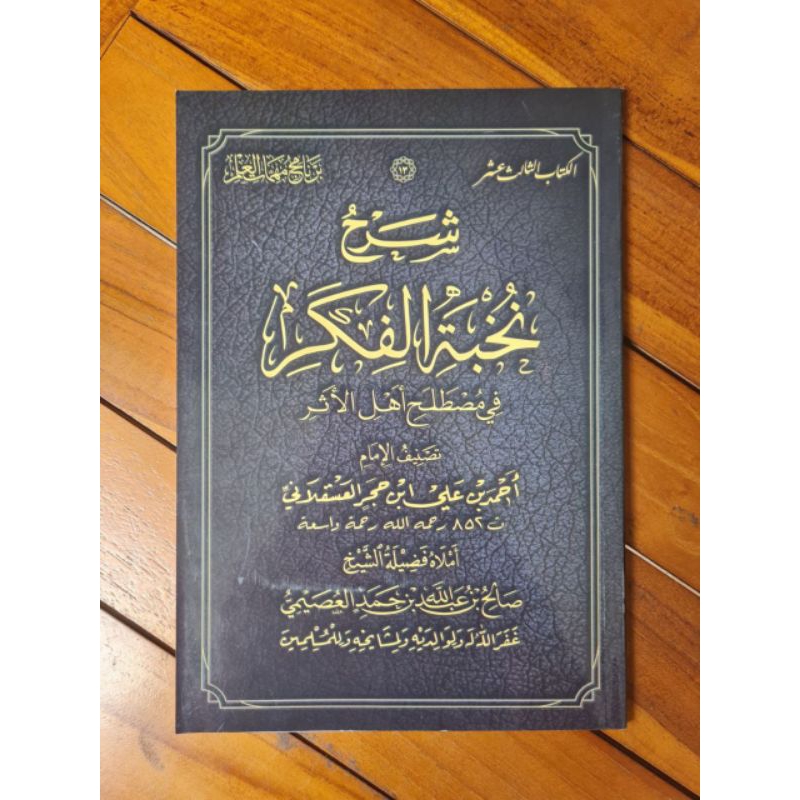 الكتاب الثالث عشر
١٣
برنامج مهمات العلم
شَرْحُ
نُخْبَةِ الْفِكَرِ
فِي مُصْطَلَحِ أَهْلِ الأَثَرِ
تَصْنِيفُ الإِمَامِ
أَحْمَدَ بْنِ عَلِيٍّ ابْنِ حَجَرٍ الْعَسْقَلَانِيِّ
ت ٨٥٢ رحمه الله رحمة واسعة
أَمْلَاهُ فَضِيلَةُ الشَّيْخِ
صَالِحُ بْنُ عَبْدِ اللَّهِ بْنِ حَمَدٍ الْعُصَيْمِيُّ
غَفَرَ اللَّهُ لَهُ وَلِوَالِدَيْهِ وَلِمَشَايِخِهِ وَلِلْمُسْلِمِينَ